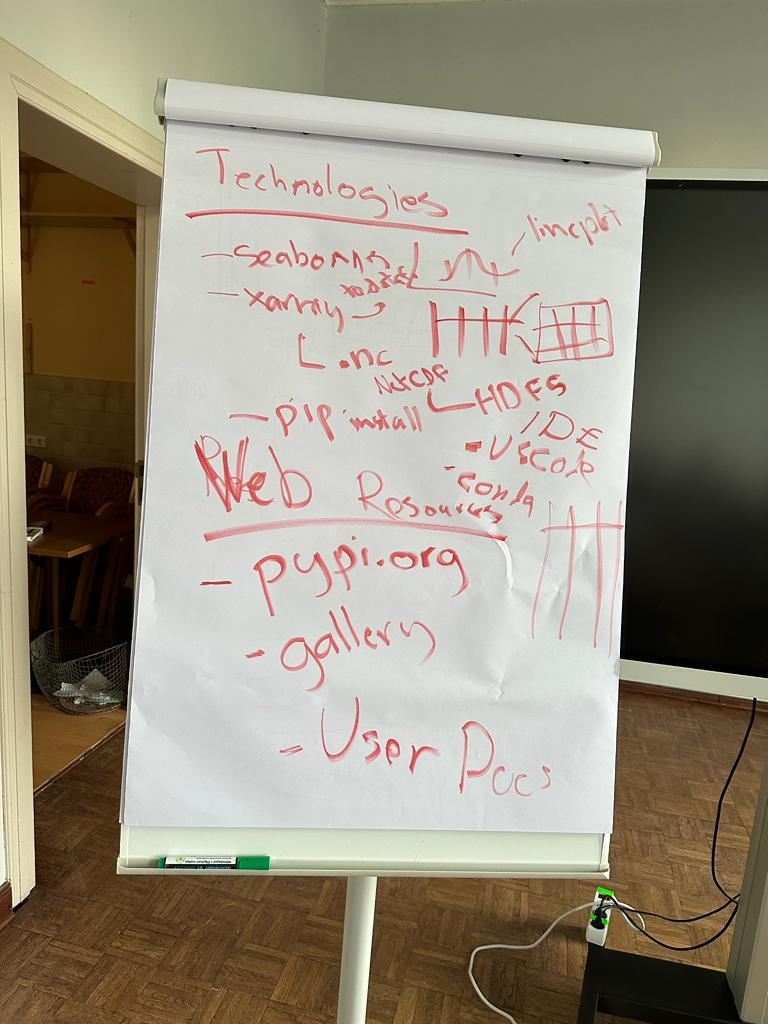 Technologies
- seaborn
lineplot
- xarray
L .nc
NetCDF
HDF5
- pip install
IDE
- VSCode
- conda
Web Resources
- pypi.org
- gallery
- User Docs